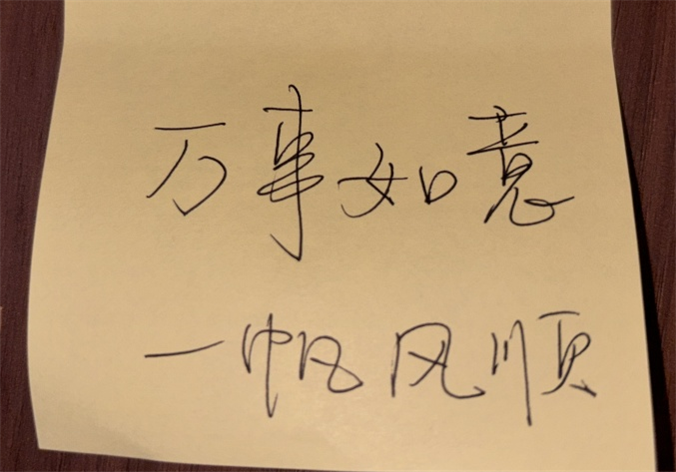 万事如意
一帆风顺